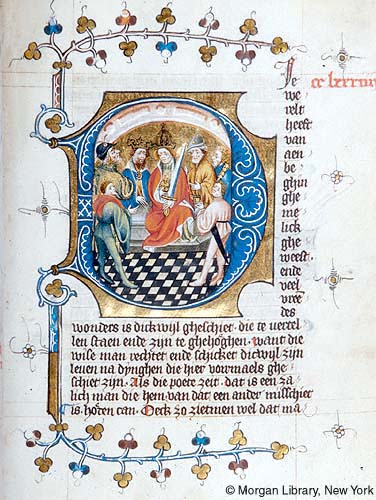 Je
we
relt
heeft
van
aen
be
ghin
ghe
me
lick
ghe
weest
ende
veel
vree
des
wonders is dickwijl gheschiet die te vertel
len staen ende zijn te ghehoghen. want die
wise man rechtet ende schicket dicwijl zijn
leuen na dynghen die hier vormaels ghe
schiet zijn. Als die poete zeit. dat is een za
lich man die hem van dat een ander misschiet
is hoten can. Oeck zo zietmen wel dat ma
© Morgan Library, New York